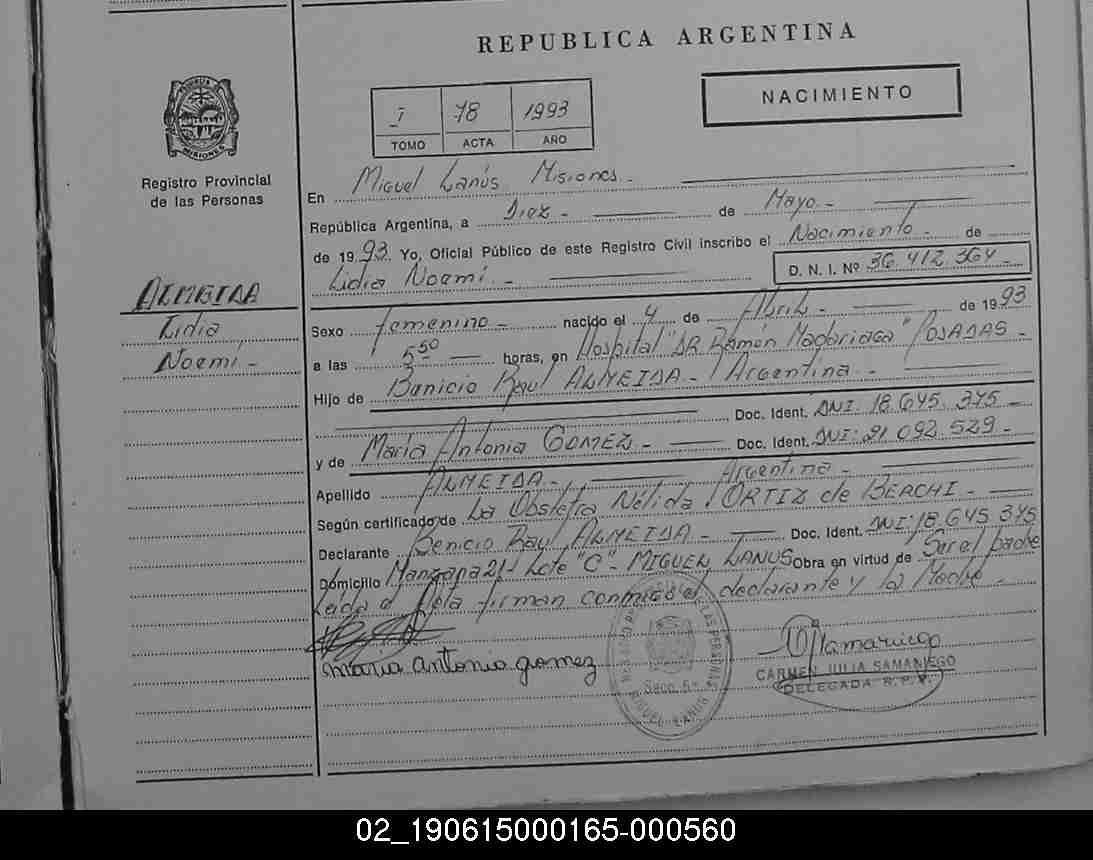 REPUBLICA ARGENTINA
NACIMIENTO
I 78 1993
TOMO ACTA AÑO
MISIONES
Registro Provincial
de las Personas
En Miguel Lanús Misiones.-
República Argentina, a Diez.- de Mayo.-
de 1993. Yo, Oficial Público de este Registro Civil inscribo el Nacimiento.- de
Lidia Noemí.- D. N. I. Nº 36.412.364.-
ALMEIDA
Lidia
Noemí.-
Sexo femenino.- nacido el 4 de Abril.- de 1993
a las 5 50 horas, en Hospital "DR. Ramón Madariaga" POSADAS.-
Hijo de Benicio Raul ALMEIDA.- Argentina.-
Doc. Ident. DNI: 18.645.375.-
y de María Antonia GOMEZ.- Doc. Ident. DNI: 21.092.529.-
Argentina.-
Apellido ALMEIDA.-
Según certificado de La Obstetra Nélida ORTIZ de BERCHI.-
Declarante Benicio Raul ALMEIDA.- Doc. Ident. DNI: 18.645.375
Domicilio Manzana 21- Lote "C"- MIGUEL LANUS Obra en virtud de Ser el padre
Leída el Acta firman conmigo el declarante y la Madre.-
maria antonia gomez
Secc. 5ª
MIGUEL LANUS
CARMEN JULIA SAMANIEGO
DELEGADA R.P.P.
02_190615000165-000560